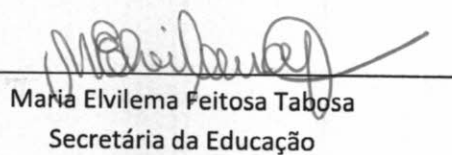 Maria Elvilema Feitosa Tabosa
Secretária da Educação